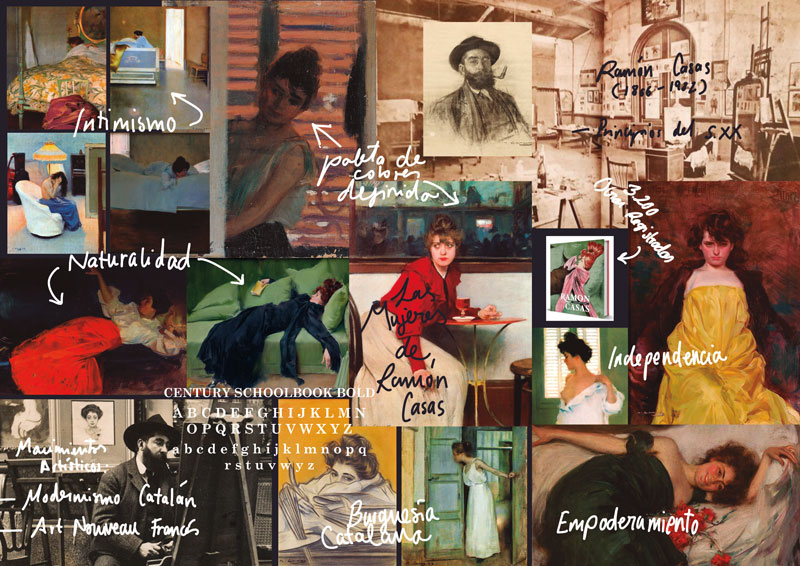 Intimismo
paleta de
colores
definida
Ramón Casas
— Principios del S.XX
3.200
Obras Registradas
Naturalidad
RAMON
CASAS
Las
Mujeres
de
Ramón
Casas
Independencia
CENTURY SCHOOLBOOK BOLD
ABCDEFGHIJKLMN
OPQRSTUVWXYZ
abcdefghijklmnopq
rstuvwyz
Movimientos
Artísticos:
— Modernismo Catalán
— Art Nouveau Francés
Burguesía
Catalana
Empoderamiento